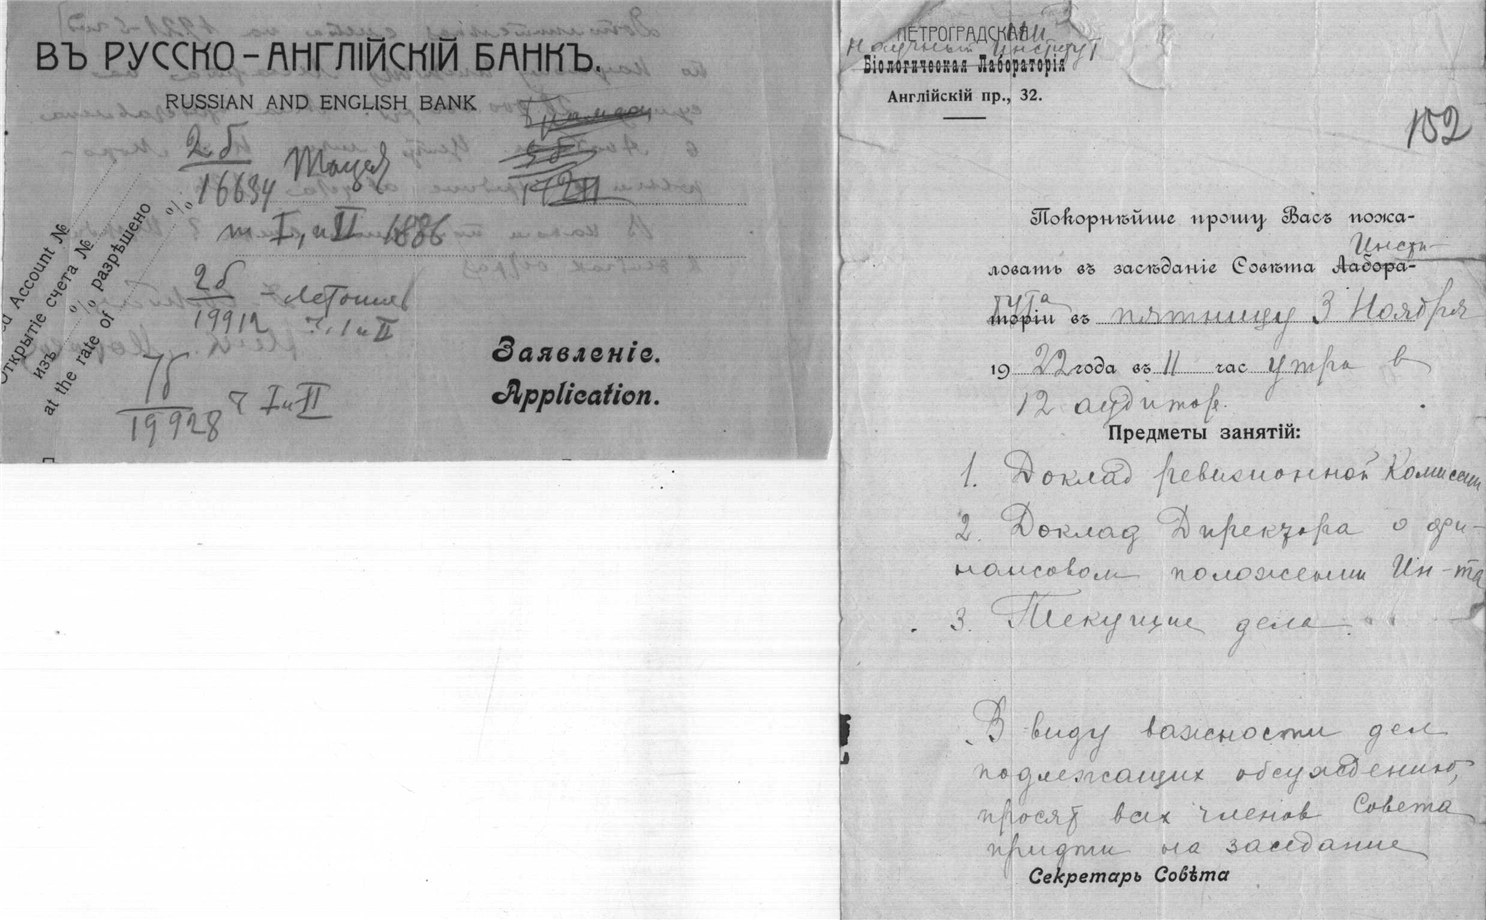 ВЪ РУССКО-АНГЛІЙСКІЙ БАНКЪ.
RUSSIAN AND ENGLISH BANK
2 б
16634
т I, и II 1886
ed Account №
Открытіе счета №
изъ % разрѣшено
at the rate of %
2 б
19912
ч. I и II
7 б
19928
ч I и II
Заявленіе.
Application.
ПЕТРОГРАДСКАЯ
Научный Институт
Біологическая Лабораторія
Англійскій пр., 32.
152
Покорнѣйше прошу Васъ пожа-
Инсти-
ловать въ засѣданіе Совѣта Лабора-
тута
торіи въ пятницу 3 Ноября
19 22 года въ 11 час утра в
12 аудитор.
Предметы занятій:
1. Доклад ревизионной Комиссии
2. Доклад Директора о фи-
нансовом положении Ин-та
3. Текущие дела.
В виду важности дел
подлежащих обсуждению,
просят всех членов Совета
придти на заседание
Секретарь Совѣта